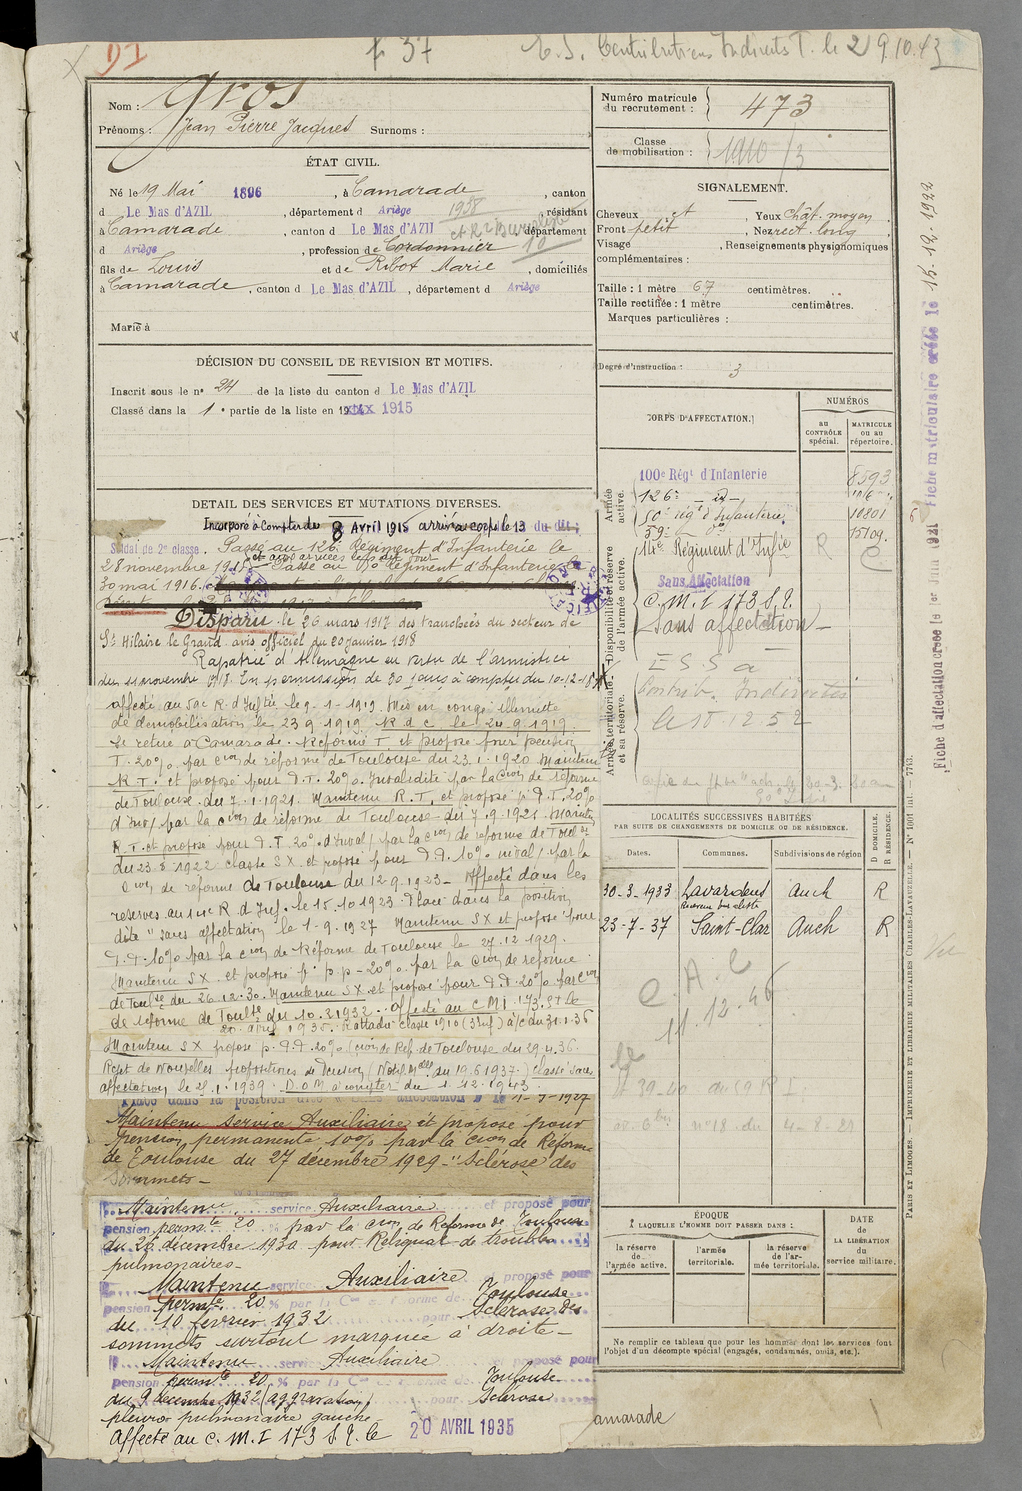 DI
f 37
E.S. Contributions Indirects T. le 29.10.43
Nom : Gros
Prénoms : Jean Pierre Jacques Surnoms :
ÉTAT CIVIL.
Né le 19 Mai 1896, à Camarade, canton
d Le Mas d'AZIL, département d Ariège 1938 résidant
à Camarade, canton d Le Mas d'AZIL département
d Ariège, profession de Cordonnier 10
fils de Louis et de Ribot Marie, domiciliés
à Camarade, canton d Le Mas d'AZIL, département d Ariège
Marié à
DÉCISION DU CONSEIL DE REVISION ET MOTIFS.
Inscrit sous le n° 24 de la liste du canton d Le Mas d'AZIL
Classé dans la 1e partie de la liste en 1915
DÉTAIL DES SERVICES ET MUTATIONS DIVERSES.
Incorporé à Compter du 8 Avril 1915 arrivé au corps le 13 du dit ;
Soldat de 2e classe. Passé au 126e Régiment d'Infanterie le
28 novembre 1915 et arrivé au corps le dit jour Passé au 50e Régiment d'Infanterie le
30 mai 1916.
Disparu le 26 mars 1917 des tranchées du secteur de
St Hilaire le Grand avis officiel du 20 janvier 1918
Rapatrié d'Allemagne en vertu de l'armistice
du 11 novembre 1918. En permission de 30 jours à compter du 10-12-18
affecté au 59e R. d'Inftie le 9-1-1919. Mis en congé illimité
de démobilisation le 23.9.1919 R.d.c. le 24.9.1919.
Se retire à Camarade. Réformé T. et proposé pour pension
T. 20% par cion de réforme de Toulouse du 23.1.1920 Maintenu
R.T. et proposé pour P.T. 20% Invalidité par la Cion de réforme
de Toulouse du 7.1.1921. Maintenu R.T. et proposé p. P.T. 20%
d'Inv/ par la cion de réforme de Toulouse du 7.9.1921. Maintenu
R.T. et proposé pour P.T. 20% d'Inval/ par la cion de réforme de Toulse
du 23.8 1922 classé S X et proposé pour P.T. 10% inval/ par la
Cion de réforme de Toulouse du 12-9-1923- Affecté dans les
réserves au 14e R. d'Inf. le 15.10.1923. Placé dans la position
dite "sans affectation le 1-9-1927 Maintenu SX et proposé pour
P.P. 10% par la cion de Réforme de Toulouse le 27.12 1929.
Maintenu SX et proposé p. p p - 20% par la Cion de réforme
de Toulse du 26.12.30. Maintenu SX et proposé pour P.P. 20% par Cion
de réforme de Toulse du 10.2.1932. affecté au CMI 173 St le
20 avril 1935. Rattaché classe 1910 (3 enf) à/c du 31.1.36
Maintenu SX proposé p. P.P. 20% (cion de Réf. de Toulouse du 29.4.36.
Rejet de nouvelles propositions de pension (Notif. Melle du 19.6.1937.) classé sans
affectation le 1.1939. D.O.M. à compter du 1.12.1943.
Placé dans la position dite "sans affectation" le 1-9-1927
Maintenu service Auxiliaire et proposé pour
pension permanente 10% par la Cion de Réforme
de Toulouse du 27 décembre 1929 - "Sclérose des
sommets -
Maintenu service Auxiliaire et proposé pour
pension permte 20 % par la Cion de Réforme de Toulouse
du 26 décembre 1930 pour Reliquat de troubles
pulmonaires -
Maintenu service Auxiliaire et proposé pour
pension permte 20 % par la Cion de Réforme de Toulouse
du 10 février 1932 pour Sclérose des
sommets surtout marquée à droite -
Maintenu service Auxiliaire et proposé pour
pension permte 20 % par la Cion de Réforme de Toulouse
du 9 décembre 1932 (aggravation) pour Sclérose
pleuro pulmonaire gauche -
Affecté au C.M.I 173 S.R. le 20 AVRIL 1935
Numéro matricule du recrutement : 473
Classe de mobilisation : 1910/3
SIGNALEMENT.
Cheveux , Yeux chât. moyen
Front petit , Nez rect. long
Visage , Renseignements physionomiques
complémentaires :
Taille : 1 mètre 67 centimètres.
Taille rectifiée : 1 mètre centimètres.
Marques particulières :
Degré d'instruction : 3
CORPS D'AFFECTATION.
NUMÉROS
AU CONTRÔLE spécial.
MATRICULE ou au répertoire.
Armée active.
100e Régt d'Infanterie 8593
126e - d -
50e régt d'Infanterie 10801
59e do 15109
Disponibilité et réserve de l'armée active.
14e Régiment d'Infie R
Sans Affectation
C.M.I 173 S.R.
Sans affectation -
Armée territoriale et sa réserve.
E S S a
Contrib. Indirectes
le 15.12.52
LOCALITÉS SUCCESSIVES HABITÉES
PAR SUITE DE CHANGEMENTS DE DOMICILE OU DE RÉSIDENCE.
D DOMICILE. R RÉSIDENCE.
Dates. Communes. Subdivisions de région
30-3-1933 Lavardens Auch R
Receveur buraliste
23-7-37 Saint-Clar Auch R
C.A.C
11.12.46
n° 18 du 4-8-21
ÉPOQUE
À LAQUELLE L'HOMME DOIT PASSER DANS :
la réserve de l'armée active.
l'armée territoriale.
la réserve de l'armée territoriale.
DATE de LA LIBÉRATION du service militaire.
Ne remplir ce tableau que pour les hommes dont les services font
l'objet d'un décompte spécial (engagés, condamnés, omis, etc.).
amarade
Fiche d'affectation créée le 1er Juin 1921
Fiche matriculaire créée le 15.12.1922
Vu
PARIS ET LIMOGES. — IMPRIMERIE ET LIBRAIRIE MILITAIRES CHARLES-LAVAUZELLE. —